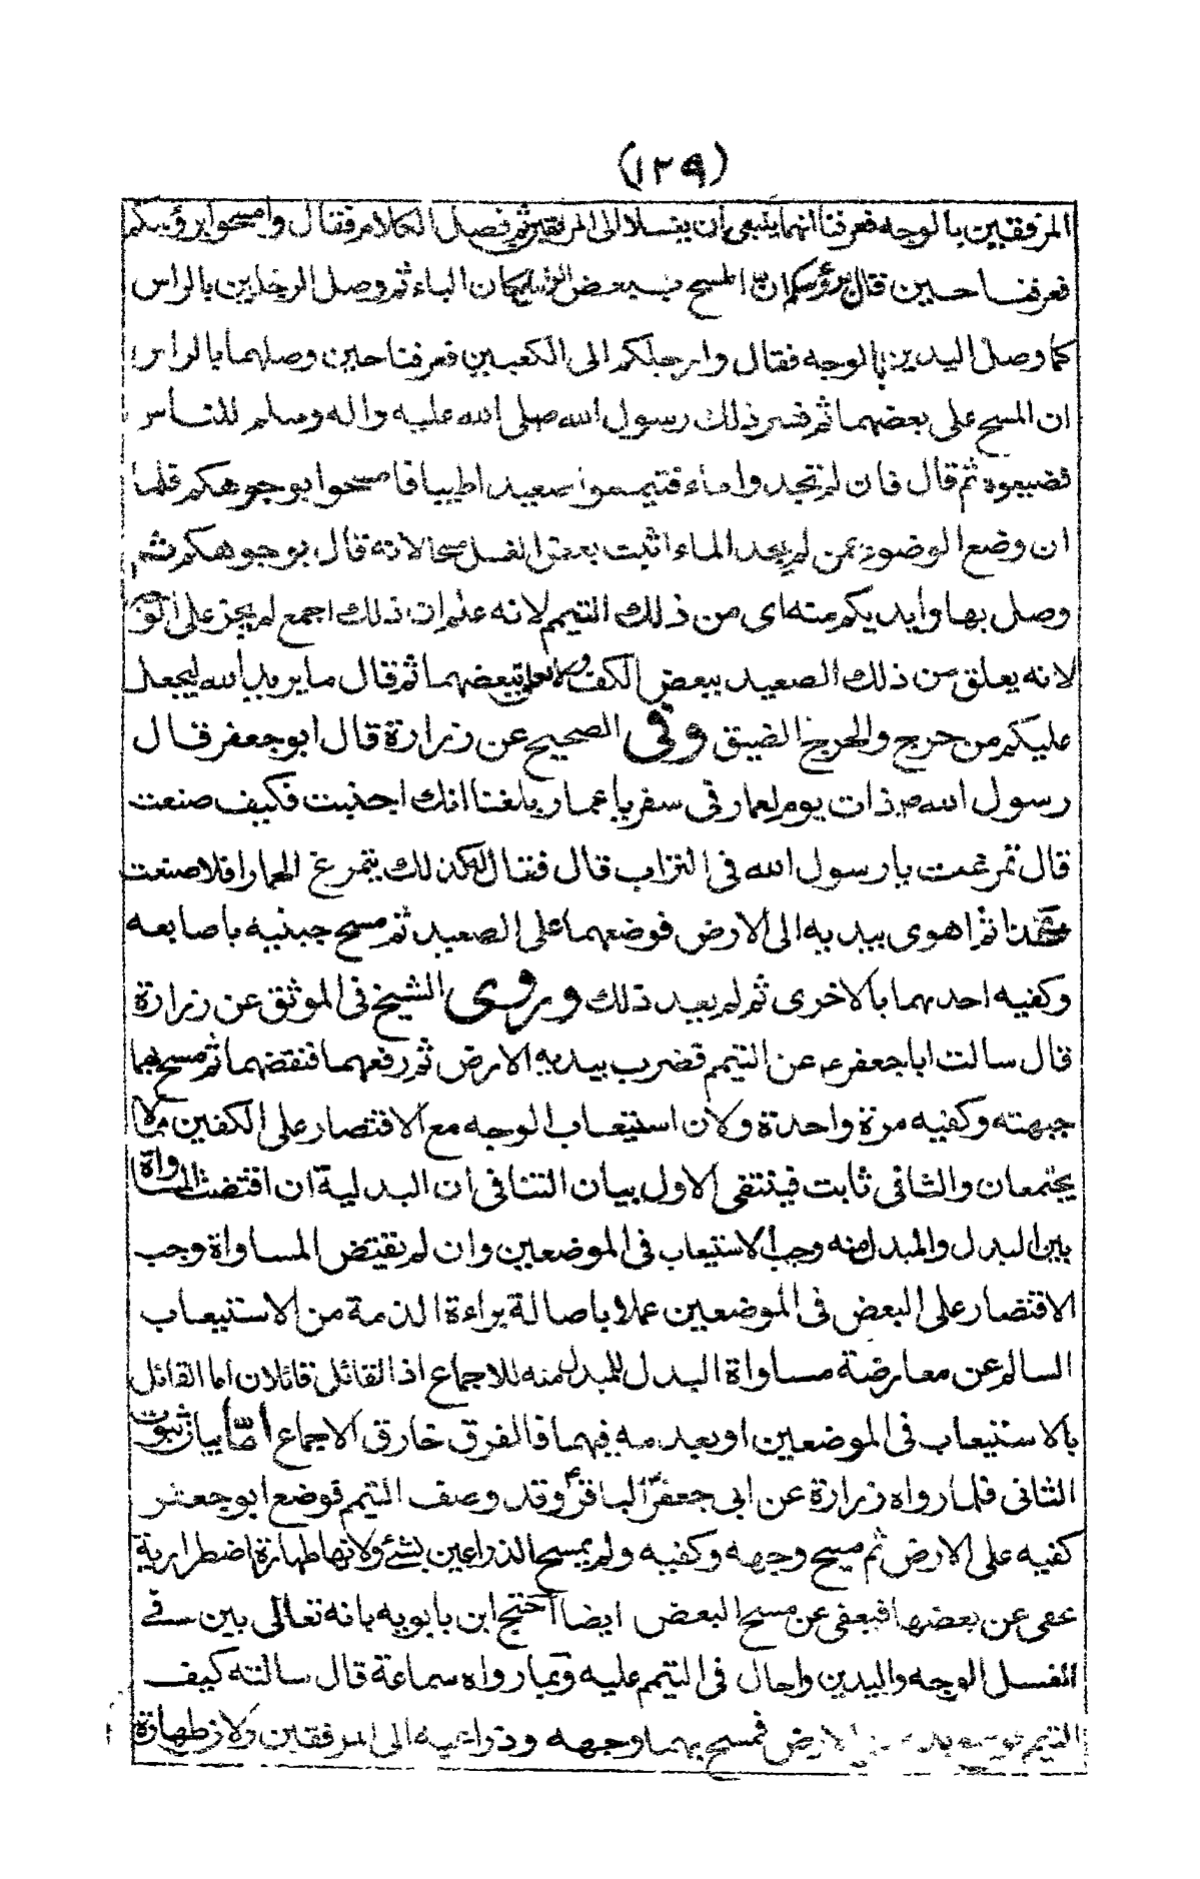 (١٢٩)
المرفقين بالوجه فعرفنا انهما ينبغي ان يغسلا الى المرفقين ثم فصل الكلام فقال وامسحوا برؤسكم
فعرفنا حين قال برؤسكم انّ المسح ببعض الراس لمكان الباء ثم وصل الرجلين بالراس
كما وصل اليدين بالوجه فقال وارجلكم الى الكعبين فعرفنا حين وصلهما بالراس
ان المسح على بعضهما ثم فسر ذلك رسول الله صلى الله عليه واله وسلم للناس
فضيعوه ثم قال فان لم تجدوا ماء فتيمموا صعيدا طيبا فامسحوا بوجوهكم فلما
ان وضع الوضوء عمن لم يجد الماء اثبت بعض الغسل مسحا لانه قال بوجوهكم ثم
وصل بها وايديكم منه اى من ذلك التيمم لانه علم ان ذلك اجمع لم يجز على الوجه
لانه يعلق من ذلك الصعيد ببعض الكف ولا يعلق ببعضهما ثم قال ما يريد الله ليجعل
عليكم من حرج والحرج الضيق وفى الصحيح عن زرارة قال ابو جعفر قال
رسول الله ص ذات يوم لعمار فى سفر يا عمار بلغنا انك اجنبت فكيف صنعت
قال تمرغت يا رسول الله فى التراب قال فقال له كذلك يتمرغ الحمار افلا صنعت
هكذا ثم اهوى بيديه الى الارض فوضعهما على الصعيد ثم مسح جبنيه باصابعه
وكفيه احدهما بالاخرى ثم لم يعد ذلك وروى الشيخ فى الموثق عن زرارة
قال سالت ابا جعفر ع عن التيمم فضرب بيديه الارض ثم رفعهما فنفضهما ثم مسح بهما
جبهته وكفيه مرة واحدة ولان استيعاب الوجه مع الاقتصار على الكفين مما لا
يجتمعان والثانى ثابت فينتفى الاول بيان التنافى ان البدلية ان اقتضت المساواة
بين البدل والمبدل منه وجب الاستيعاب فى الموضعين وان لم يقتض المساواة وجب
الاقتصار على البعض فى الموضعين عملا باصالة براءة الذمة من الاستيعاب
السالم عن معارضة مساواة البدل للمبدل منه للاجماع اذ القائل قائلان اما القائل
بالاستيعاب فى الموضعين او بعدمه فيهما فالفرق خارق الاجماع امّا بيان ثبوت
الثانى فلما رواه زرارة عن ابى جعفر الباقر ع وقد وصف التيمم فوضع ابو جعفر
كفيه على الارض ثم مسح وجهه وكفيه ولم يمسح الذراعين بشئ ولانها طهارة اضطرارية
عفى عن بعضها فيعفى عن مسح البعض ايضا احتج ابن بابويه بانه تعالى بين فى
الغسل الوجه واليدين واحال فى التيمم عليه وبما رواه سماعة قال سالته كيف
التيمم فوضع يده الارض فمسح بهما وجهه وذراعيه الى المرفقين ولان طهارة